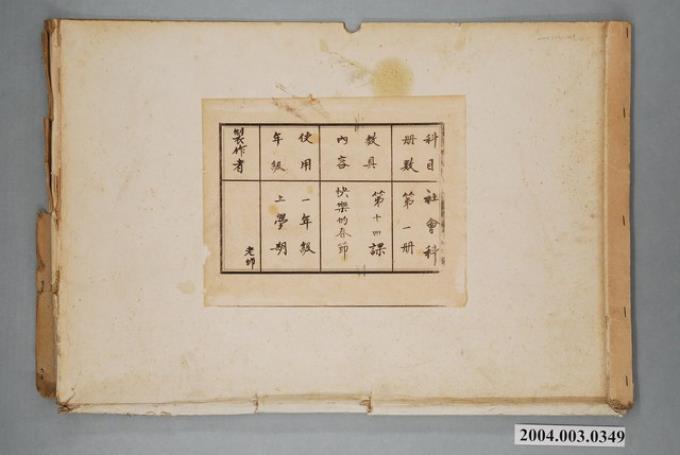 科目 社會科
册數 第一册
教具 第十四課
內容 快樂的春節
使用 一年級
年級 上學期
製作者 老師
2004.003.0349